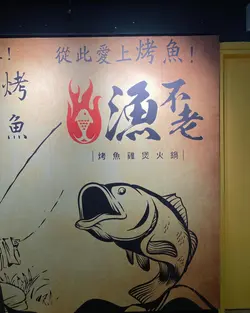 從此愛上烤魚!
!
烤魚
漁不老
|烤魚雞煲火鍋|